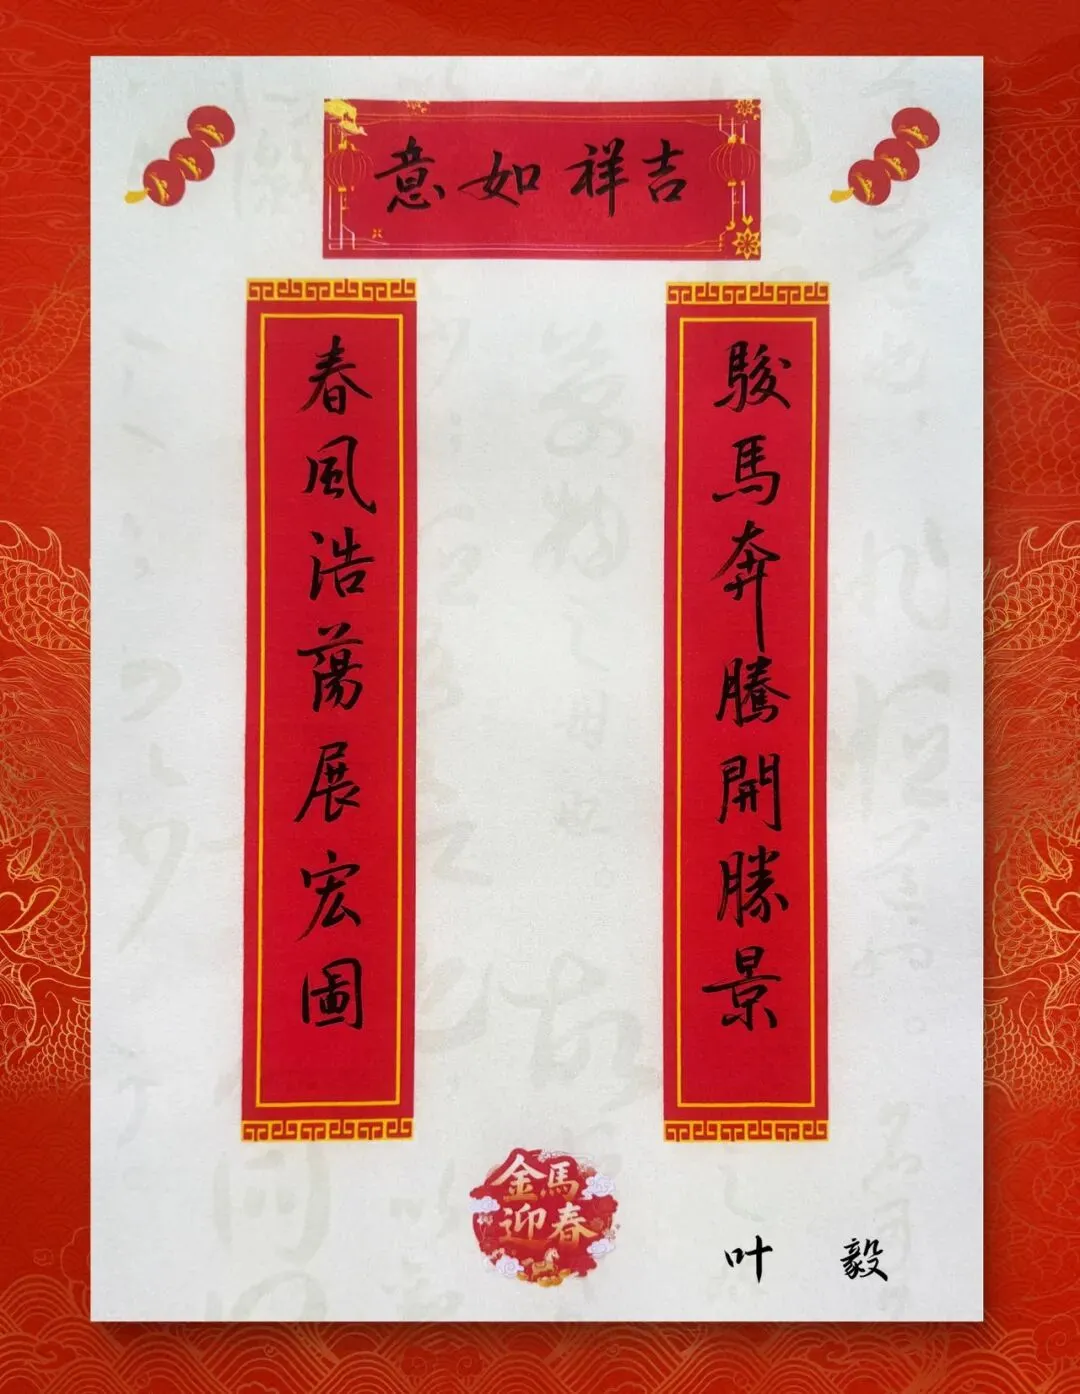 吉祥如意
駿馬奔騰開勝景
春風浩蕩展宏圖
金馬
迎春
叶毅